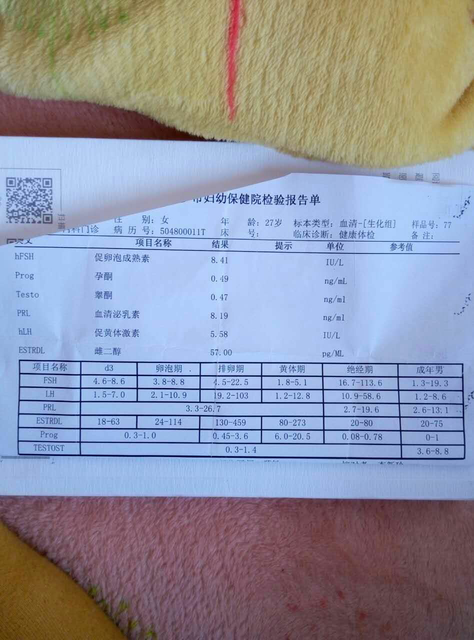 市妇幼保健院检验报告单
性 别: 女 年 龄: 27岁 标本类型: 血清-[生化组] 样品号: 77
门诊 病 历 号: 504800011T 床 号: 临床诊断: 健康体检 备 注:
英文 项目名称 结果 提示 单位 参考值
hFSH 促卵泡成熟素 8.41 IU/L
Prog 孕酮 0.49 ng/mL
Testo 睾酮 0.47 ng/ml
PRL 血清泌乳素 8.19 ng/ml
hLH 促黄体激素 5.58 IU/L
ESTRDL 雌二醇 57.00 pg/ML
项目名称 d3 卵泡期 排卵期 黄体期 绝经期 成年男
FSH 4.6-8.6 3.8-8.8 4.5-22.5 1.8-5.1 16.7-113.6 1.3-19.3
LH 1.5-7.0 2.1-10.9 19.2-103 1.2-12.8 10.9-58.6 1.2-8.6
PRL 3.3-26.7 2.7-19.6 2.6-13.1
ESTRDL 18-63 24-114 130-459 80-273 20-80 20-75
Prog 0.3-1.0 0.45-3.6 6.0-20.5 0.08-0.78 0-1
TESTOST 0.3-1.4 3.6-8.8